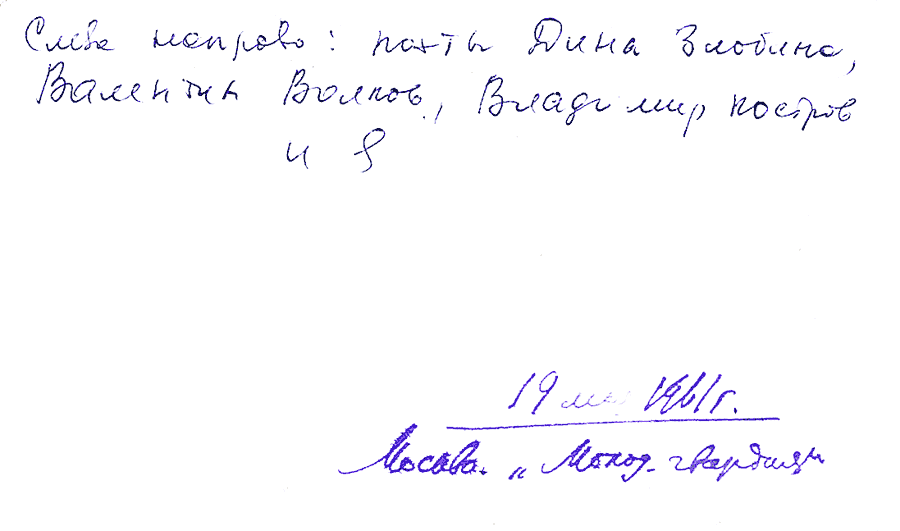 Слева направо: поэты Дина Злобина,
Валентин Волков, Владимир Костров
и я
19 мая 1961 г.
Москва. „Молод. гвардия"